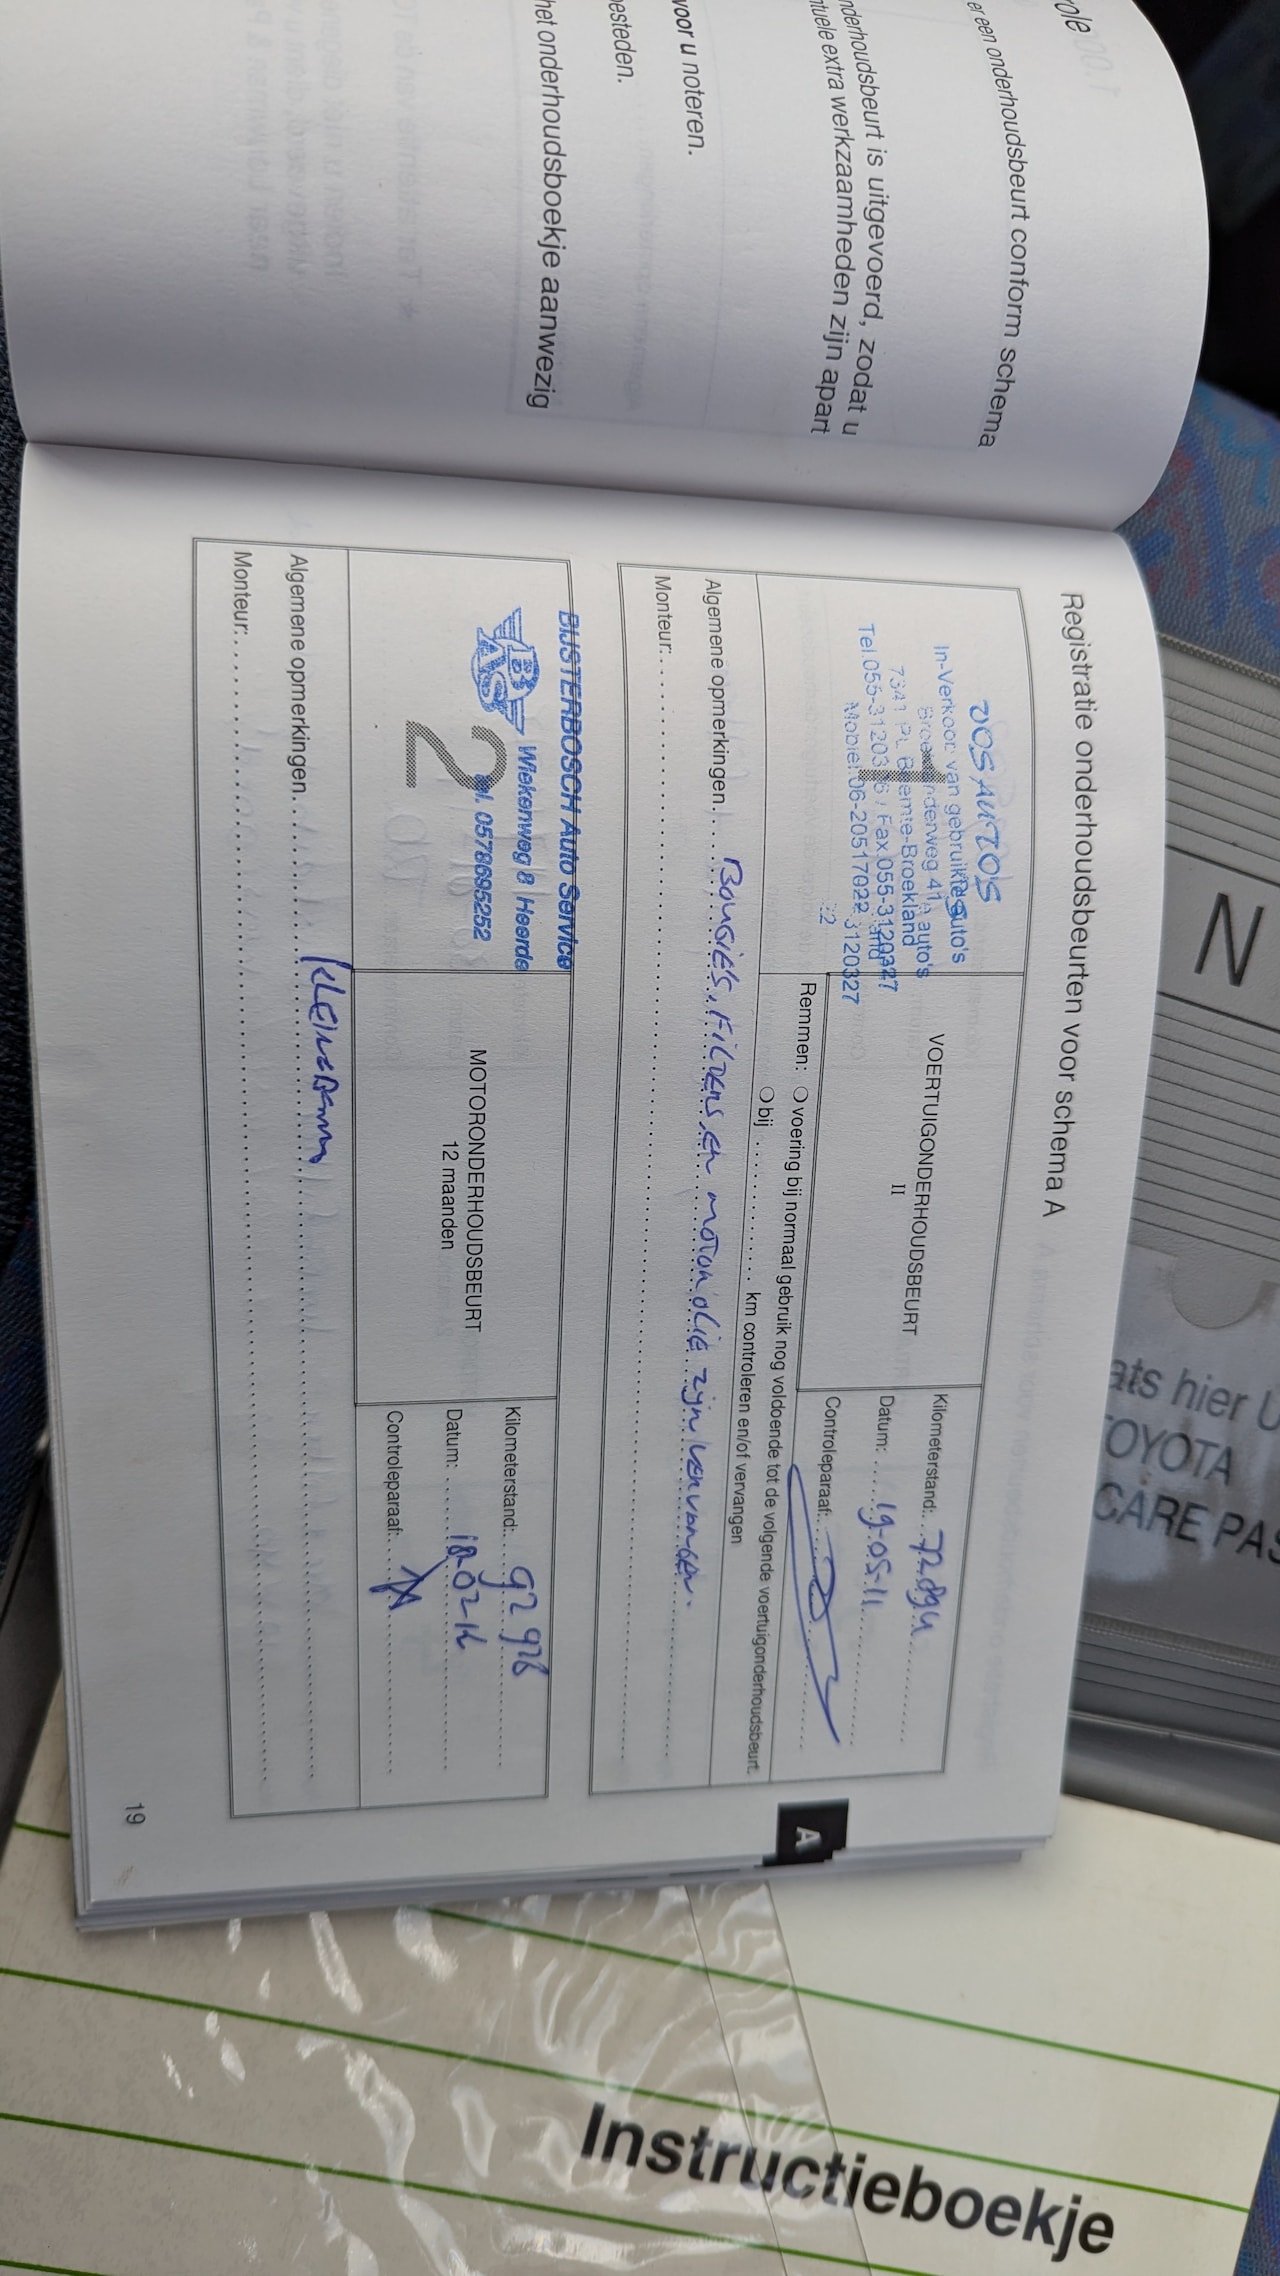 er een onderhoudsbeurt conform schema
nderhoudsbeurt is uitgevoerd, zodat u
extra werkzaamheden zijn apart
voor u noteren.
besteden.
het onderhoudsboekje aanwezig
Registratie onderhoudsbeurten voor schema A
VOS AUTO'S
In-Verkoop van gebruikte auto's
7341 PL Beemte-Broekland
Fax.055-3120327
Mobiel.06-20517022
1
VOERTUIGONDERHOUDSBEURT
II
Kilometerstand:
Datum: 19-05-11
Controleparaaf:
Remmen: voering bij normaal gebruik nog voldoende tot de volgende voertuigonderhoudsbeurt.
bij km controleren en/of vervangen
Algemene opmerkingen. Bougie's, Filters en motor olie zijn vervangen.
Monteur:
BIJSTERBOSCH Auto Service
BAS
Wiekenweg 8 Heerde
Tel. 0578695252
2
MOTORONDERHOUDSBEURT
12 maanden
Kilometerstand: 92 976
Datum:
Controleparaaf:
Algemene opmerkingen.
Monteur:
19
A
N
ats hier U
TOYOTA
CARE PAS
Instructieboekje